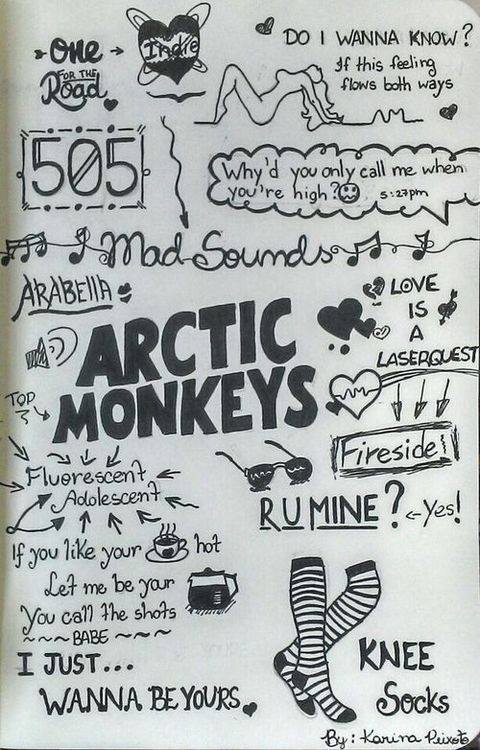 One
FOR THE
Road
Indie
DO I WANNA KNOW?
If this feeling
flows both ways
505
Why'd you only call me when
you're high? 5:27pm
Mad Sounds
ARABELLA
LOVE
IS
A
LASERQUEST
ARCTIC
MONKEYS
TOP
Fireside!
Fluorescent
Adolescent
R U MINE? Yes!
If you like your hot
Let me be your
You call the shots
~~~~BABE~~~
I JUST...
WANNA BE YOURS
KNEE
Socks
By: Karina Peixoto